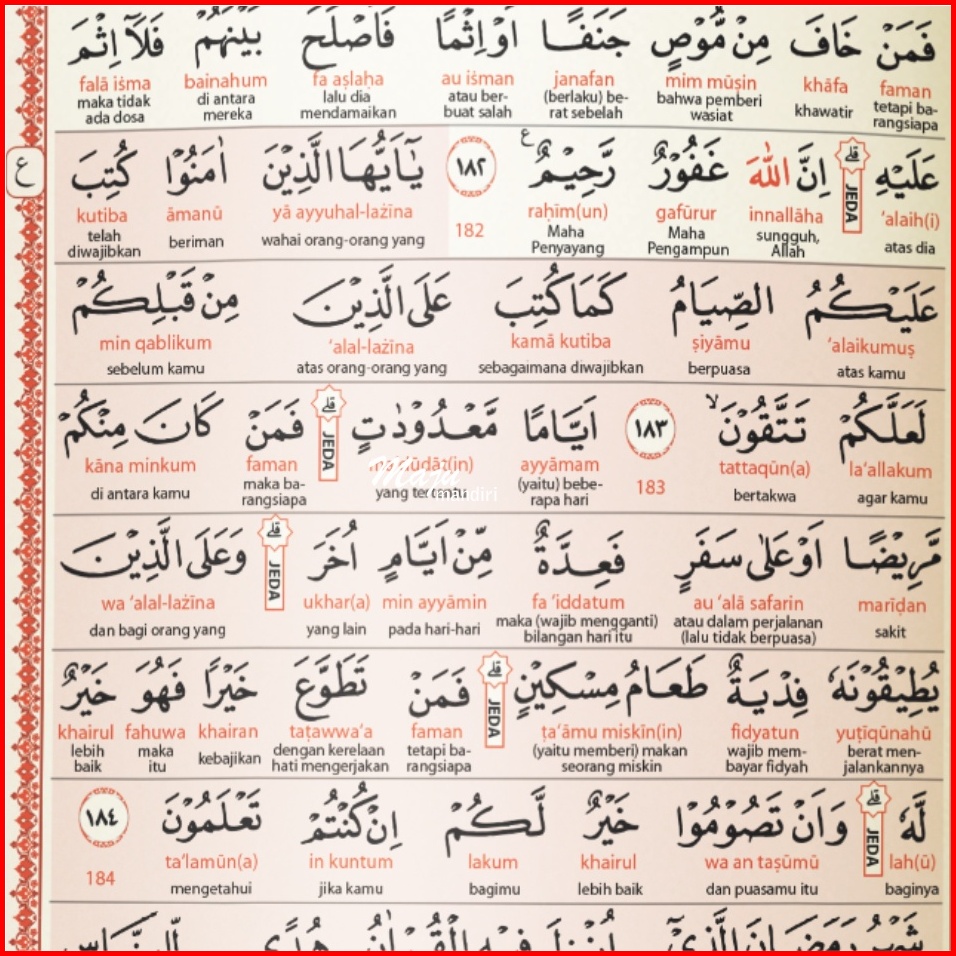 فَمَنْ خَافَ مِنْ مُّوْصٍ جَنَفًا اَوْ اِثْمًا فَاَصْلَحَ بَيْنَهُمْ فَلَآ اِثْمَ
faman khāfa mim mūṣin janafan au iṡman fa aṣlaḥa bainahum falā iṡma
tetapi ba-rangsiapa khawatir bahwa pemberi wasiat (berlaku) be-rat sebelah atau ber-buat salah lalu dia mendamaikan di antara mereka maka tidak ada dosa
عَلَيْهِ ۗ JEDA اِنَّ اللّٰهَ غَفُوْرٌ رَّحِيْمٌ ࣖ ١٨٢ يٰٓاَيُّهَا الَّذِيْنَ اٰمَنُوْا كُتِبَ ع
'alaih(i) innallāha gafūrur raḥīm(un) 182 yā ayyuhal-lażīna āmanū kutiba
atas dia sungguh, Allah Maha Pengampun Maha Penyayang wahai orang-orang yang beriman telah diwajibkan
عَلَيْكُمُ الصِّيَامُ كَمَا كُتِبَ عَلَى الَّذِيْنَ مِنْ قَبْلِكُمْ
'alaikumuṣ ṣiyāmu kamā kutiba 'alal-lażīna min qablikum
atas kamu berpuasa sebagaimana diwajibkan atas orang-orang yang sebelum kamu
لَعَلَّكُمْ تَتَّقُوْنَۙ ١٨٣ اَيَّامًا مَّعْدُوْدٰتٍ ۗ JEDA فَمَنْ كَانَ مِنْكُمْ
la'allakum tattaqūn(a) 183 ayyāmam faman kāna minkum
agar kamu bertakwa (yaitu) bebe-rapa hari maka ba-rangsiapa di antara kamu
مَّرِيْضًا اَوْ عَلٰى سَفَرٍ فَعِدَّةٌ مِّنْ اَيَّامٍ اُخَرَ ۗ JEDA وَعَلَى الَّذِيْنَ
marīḍan au 'alā safarin fa 'iddatum min ayyāmin ukhar(a) wa 'alal-lażīna
sakit atau dalam perjalanan (lalu tidak berpuasa) maka (wajib mengganti) bilangan hari itu pada hari-hari yang lain dan bagi orang yang
يُطِيْقُوْنَهٗ فِدْيَةٌ طَعَامُ مِسْكِيْنٍ ۗ JEDA فَمَنْ تَطَوَّعَ خَيْرًا فَهُوَ خَيْرٌ
yuṭīqūnahū fidyatun ṭa'āmu miskīn(in) faman taṭawwa'a khairan fahuwa khairul
berat men-jalankannya wajib mem-bayar fidyah (yaitu memberi) makan seorang miskin tetapi ba-rangsiapa dengan kerelaan hati mengerjakan kebajikan maka itu lebih baik
لَّهٗ ۗ JEDA وَاَنْ تَصُوْمُوْا خَيْرٌ لَّكُمْ اِنْ كُنْتُمْ تَعْلَمُوْنَ ١٨٤
lah(ū) wa an taṣūmū khairul lakum in kuntum ta'lamūn(a) 184
baginya dan puasamu itu lebih baik bagimu jika kamu mengetahui